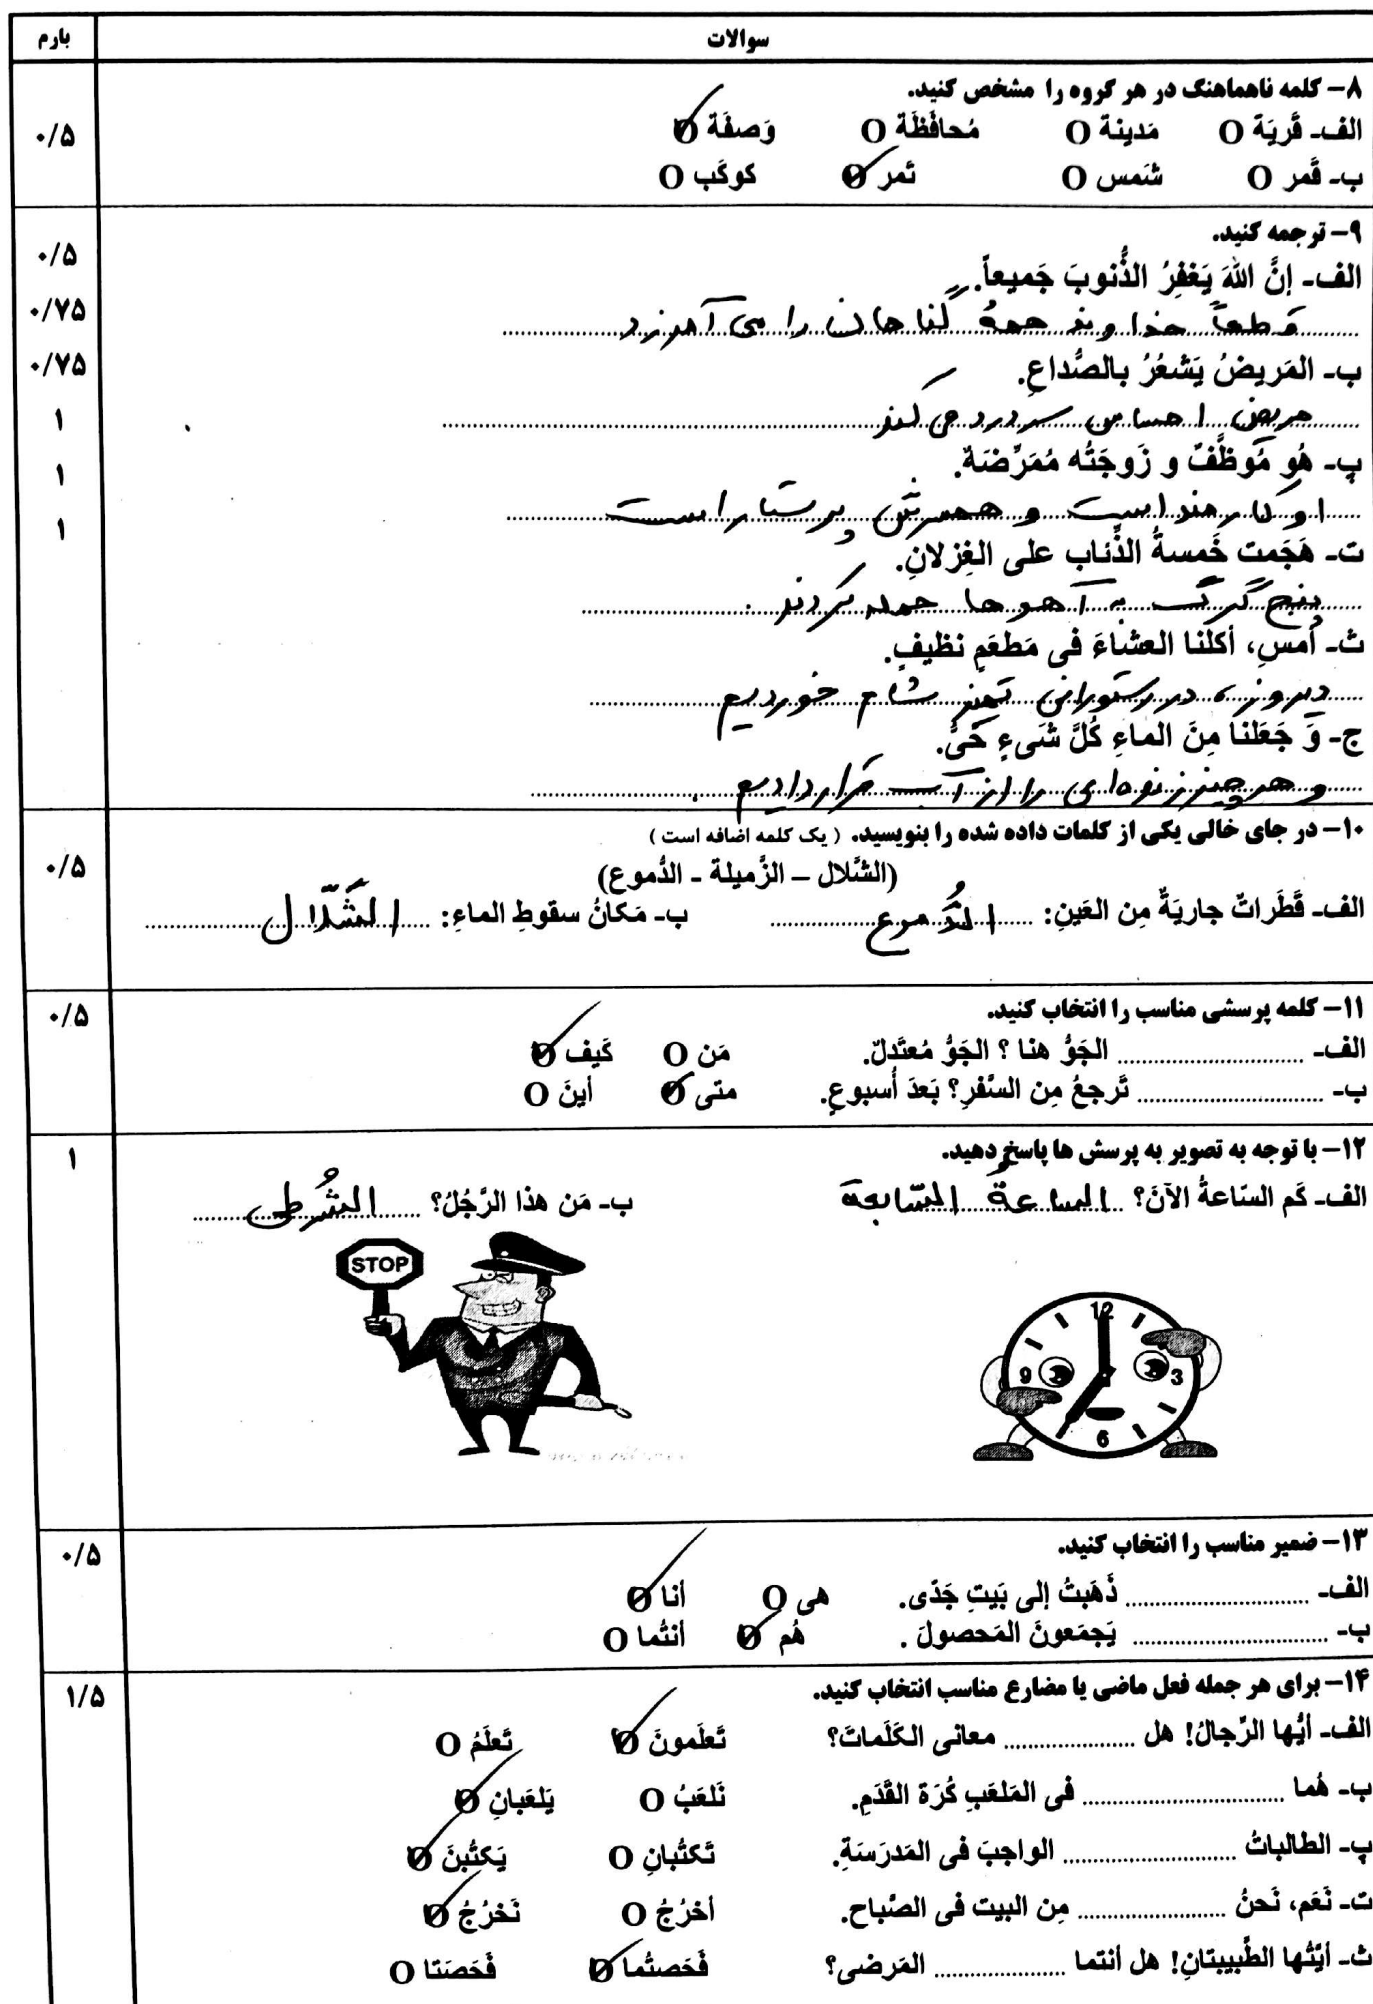 سوالات
بارم
۸- کلمه ناهماهنگ در هر گروه را مشخص کنید.
الف- قَریَة O مَدینة O مُحافَظَة O وَصفَة O
ب- قَمر O شَمس O ثَمر O کوکَب O
۰/۵
۹- ترجمه کنید.
الف- إنَّ اللّهَ یَغفِرُ الذُّنوبَ جَمیعاً.
۰/۵
قطعاً خداوند همهٔ گناهان را می آمرزد
۰/۷۵
ب- المَریضُ یَشعُرُ بالصُّداعِ.
۰/۷۵
مریض احساس سردرد می کند
۱
پ- هُو مُوظَّفٌ و زَوجَتُه مُمَرِّضَةٌ.
۱
او کارمند است و همسرش پرستار است
۱
ت- هَجَمت خَمسةُ الذِّئاب علی الغِزلانِ.
پنج گرگ به آهوها حمله کردند.
ث- أمسِ، أکَلنا العشاءَ فی مَطعَمٍ نظیفٍ.
دیروز، در رستورانی تمیز شام خوردیم
ج- وَ جَعَلنا مِنَ الماءِ کُلَّ شَیءٍ حَیٍّ.
و هر چیز زنده ای را از آب قرار دادیم.
۱۰- در جای خالی یکی از کلمات داده شده را بنویسید. ( یک کلمه اضافه است )
(الشَّلال – الزَّمیلة - الدُّموع)
۰/۵
الف- قَطَراتٌ جاریَةٌ مِن العَینِ: الدُّموع ب- مَکانُ سقوطِ الماءِ: الشَّلّال
۱۱- کلمه پرسشی مناسب را انتخاب کنید.
۰/۵
الف- الجَوُّ هنا ؟ الجَوُّ مُعتَدلٌ. مَن O کَیف O
ب- تَرجعُ مِن السَّفرِ؟ بَعدَ أُسبوعٍ. متی O أینَ O
۱۲- با توجه به تصویر به پرسش ها پاسخ دهید.
۱
الف- کَم السّاعةُ الآنَ؟ الساعةُ السّابعة ب- مَن هذا الرَّجُلُ؟ الشُرطی
STOP
12
9 3
6
۱۳- ضمیر مناسب را انتخاب کنید.
۰/۵
الف- ذَهَبتُ إلی بَیتِ جَدّی. هی O أنا O
ب- یَجمَعونَ المَحصولَ . هُم O أنتُما O
۱۴- برای هر جمله فعل ماضی یا مضارع مناسب انتخاب کنید.
۱/۵
الف- أیُّها الرِّجالُ! هل معانی الکَلَماتَ؟ تَعلَمونَ O تَعلَمُ O
ب- هُما فی المَلعَبِ کُرَة القَدَمِ. نَلعَبُ O یَلعَبانِ O
پ- الطالباتُ الواجبَ فی المَدرَسَةِ. تَکتُبانِ O یَکتُبنَ O
ت- نَعَم، نَحنُ مِن البیت فی الصَّباح. أخرُجُ O نَخرُجُ O
ث- أیَّتُها الطَّبیبتانِ! هل أنتما المَرضی؟ فَحَصتُما O فَحَصَتا O